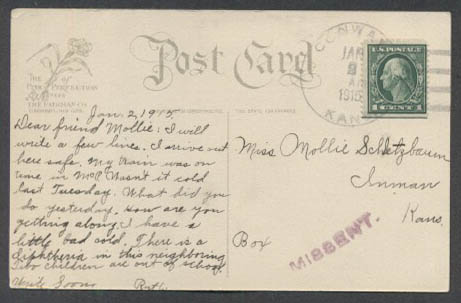 Post Card
CONWAY
JAN
1915
KANS
U.S. POSTAGE
1 CENT 1
THE
of
PERFECTION
THE FAIRMAN CO.
Jan. 2, 1915.
Dear friend Mollie: I will
write a few lines. I arrive out
here safe. My train was on
time in McP. Wasn't it cold
last Tuesday. What did you
do yesterday. How are you
getting along. I have a
little bad cold. There is a
diphtheria in this neighboring
Two children are out of school.
Write Soon
Ruth
Miss Mollie Schletzbaum
Inman
Kans.
Box
MISSENT.